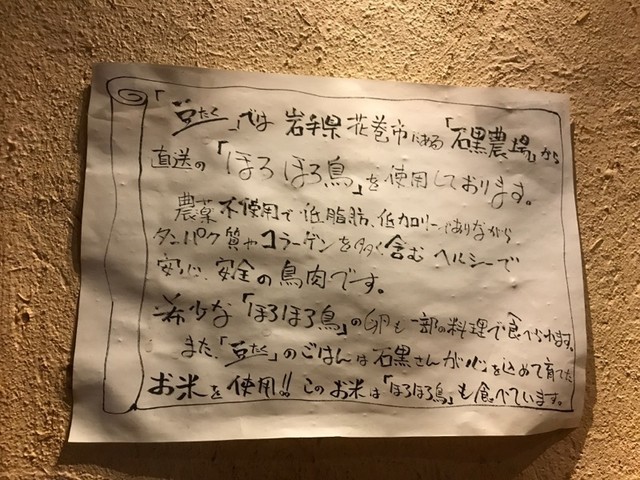 「豆たく」では 岩手県 花巻市にある「石黒農場」から
直送の「ほろほろ鳥」を使用しております。
農薬不使用で低脂肪、低カロリーでありながら
タンパク質やコラーゲンを多く含む ヘルシーで
安心、安全の鳥肉です。
希少な「ほろほろ鳥」の卵も一部の料理で食べられます。
また、「豆たく」のごはんは石黒さんが心を込めて育てた
お米を使用!! このお米は「ほろほろ鳥」も食べています。